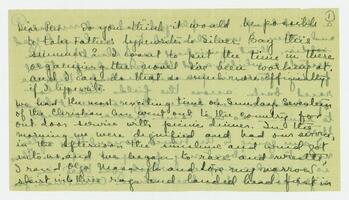 ①
Dear Bess Do you think it would be possible
to take Father's typewriter to Silver Bay this
summer? I want to put the time in there
organizing the novel I've been working at
and I can do that so much more efficiently
if I typewrite.
We had the most exciting time on Sunday. Seventeen
of the Christian             went out to the country for
out door service with picnic dinner. In the
morning we were dignified and had our service,
in the afternoon the sunshine and wind got
into us and we began to race and wrestle.
I raced                   and tore my          
skirt into three rags and landed head first in